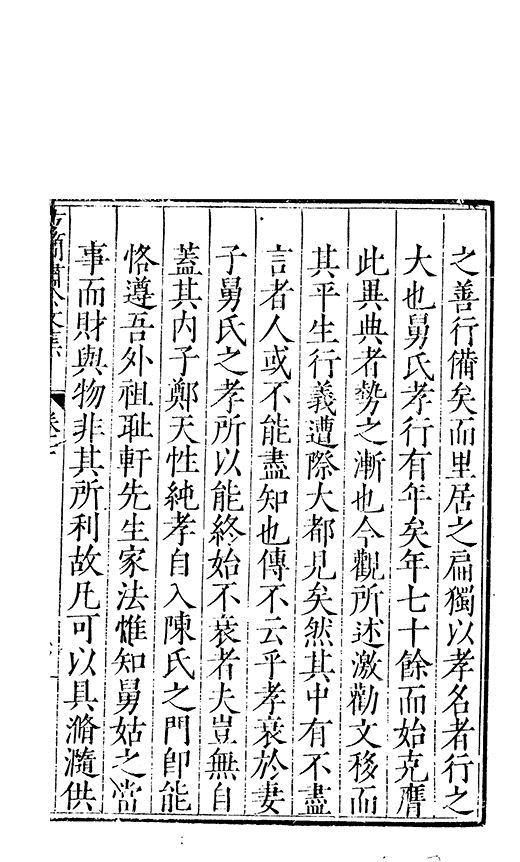 之善行備矣而里居之扁獨以孝名者行之
大也舅氏孝行有年矣年七十餘而始克膺
此異典者勢之漸也今觀所述激勸文移而
其平生行義遭際大都見矣然其中有不盡
言者人或不能盡知也傳不云乎孝衰於妻
子舅氏之孝所以能終始不衰者夫豈無自
蓋其內子鄭天性純孝自入陳氏之門卽能
恪遵吾外祖耻軒先生家法惟知舅姑之當
事而財與物非其所利故凡可以具滫瀡供
簡肅公文集